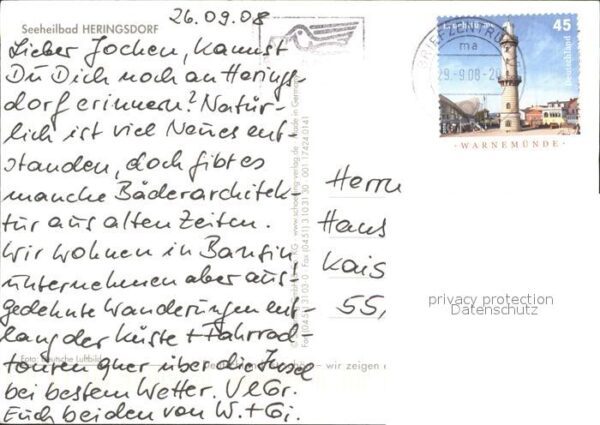 26.09.08
Seeheilbad HERINGSDORF
Lieber Jochen, kannst
Du Dich noch an Herings-
dorf erinnern? Natür-
lich ist viel Neues ent
standen, doch gibt es
manche Bäderarchitek-
tur aus alten Zeiten.
Wir wohnen in Bansin,
unternehmen aber aus-
gedehnte Wanderungen ent-
lang der Küste + Fahrrad-
touren quer über die Insel
bei bestem Wetter. VlGr.
Euch beiden von W.+Gi.
Foto: Deutsche Luftbild
– wir zeigen
Made in Germany
www.schoening-verlag.de
001 17424 0141
Fax (04 51) 3 10 31 30
BRIEFZENTRUM
ma
29.-9.08-20
45
Deutschland
WARNEMÜNDE
Herrn
Hans
Kais
55,
privacy protection
Datenschutz